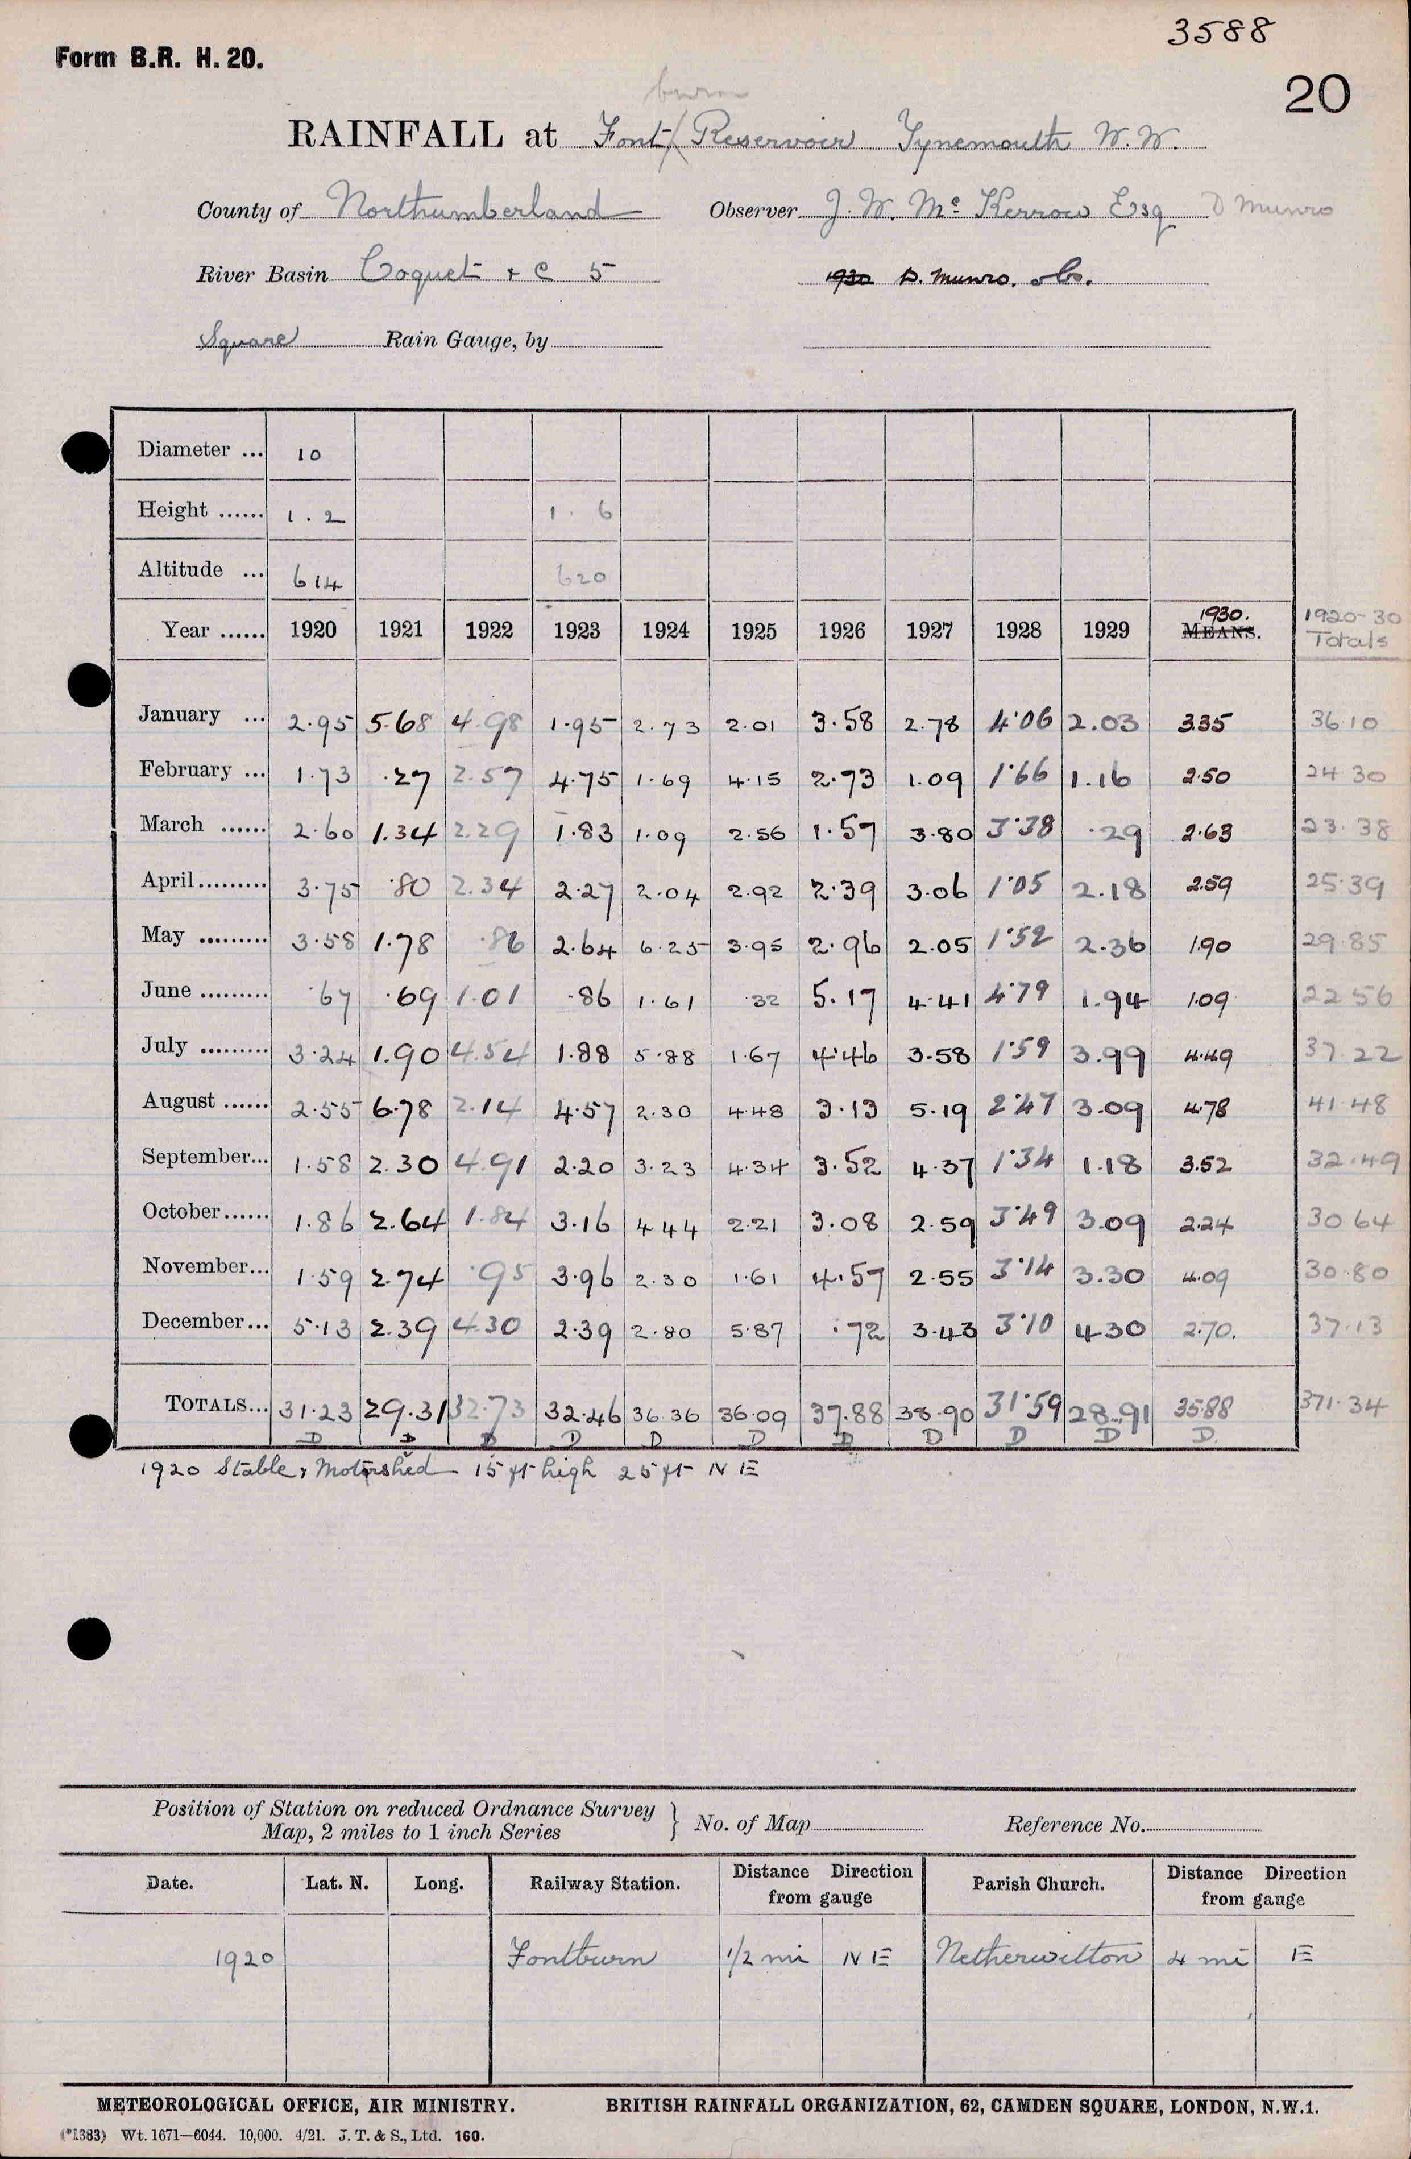 3588
Form B.R. H. 20.
20
burn
RAINFALL at Font Reservoir Tynemouth W.W.
County of Northumberland Observer J. W. Mc Kerrow Esq D Munro
River Basin Coquet & C 5 1930 D. Munro. obs.
Square Rain Gauge, by
Diameter ... 10
Height ...... 1.2 1.6
Altitude ... 614 620
Year ...... 1920 1921 1922 1923 1924 1925 1926 1927 1928 1929 1930. MEANS. 1920-30 Totals
January ... 2.95 5.68 4.98 1.95 2.73 2.01 3.58 2.78 4.06 2.03 3.35 36.10
February ... 1.73 .27 2.57 4.75 1.69 4.15 2.73 1.09 1.66 1.16 2.50 24.30
March ...... 2.60 1.34 2.29 1.83 1.09 2.56 1.57 3.80 3.38 .29 2.63 23.38
April......... 3.75 .80 2.34 2.27 2.04 2.92 2.39 3.06 1.05 2.18 2.59 25.39
May ......... 3.58 1.78 .86 2.64 6.25 3.95 2.96 2.05 1.52 2.36 1.90 29.85
June ......... .67 .69 1.01 .86 1.61 .32 5.17 4.41 4.79 1.94 1.09 22.56
July ......... 3.24 1.90 4.54 1.88 5.88 1.67 4.46 3.58 1.59 3.99 4.49 37.22
August ...... 2.55 6.78 2.14 4.57 2.30 4.48 3.13 5.19 2.47 3.09 4.78 41.48
September... 1.58 2.30 4.91 2.20 3.23 4.34 3.52 4.37 1.34 1.18 3.52 32.49
October...... 1.86 2.64 1.84 3.16 4.44 2.21 3.08 2.59 3.49 3.09 2.24 30.64
November... 1.59 2.74 .95 3.96 2.30 1.61 4.57 2.55 3.14 3.30 4.09 30.80
December... 5.13 2.39 4.30 2.39 2.80 5.87 .72 3.43 3.10 4.30 2.70. 37.13
TOTALS... 31.23 29.31 32.73 32.46 36.36 36.09 37.88 38.90 31.59 28.91 35.88 371.34
D D D D D D D D D D D.
1920 Stable & Motorshed 15 ft high 25 ft NE
Position of Station on reduced Ordnance Survey Map, 2 miles to 1 inch Series } No. of Map Reference No.
Date. Lat. N. Long. Railway Station. Distance Direction from gauge Parish Church. Distance Direction from gauge
1920 Fontburn 1/2 mi NE Netherwitton 4 mi E
METEOROLOGICAL OFFICE, AIR MINISTRY. BRITISH RAINFALL ORGANIZATION, 62, CAMDEN SQUARE, LONDON, N.W.1.
(*1383) Wt. 1671—6044. 10,000. 4/21. J. T. & S., Ltd. 160.